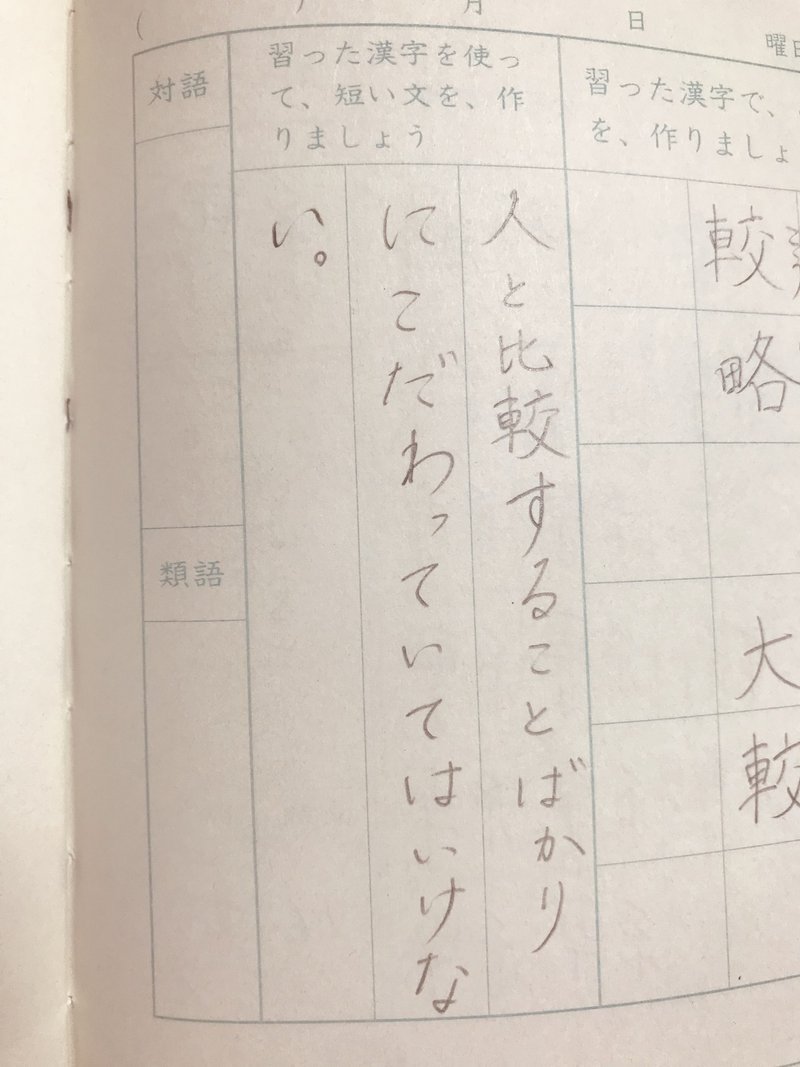 月
日
曜日
習った漢字で、
を、作りましょ
較
略
大
較
習った漢字を使っ
て、短い文を、作
りましょう
人と比較することばかり
にこだわっていてはいけな
い。
対語
類語